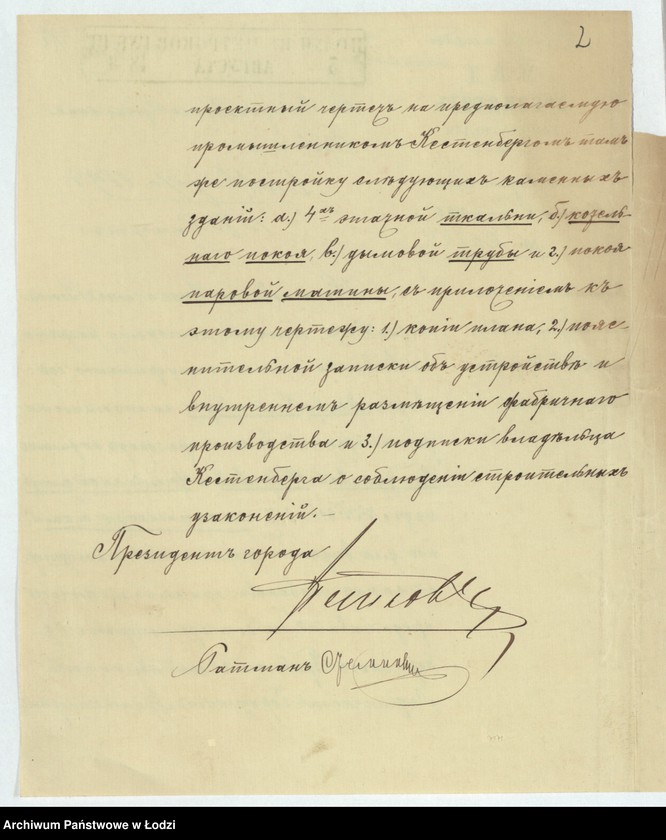 2
проектный чертежъ на предполагаемую
промышленникомъ Кестенбергомъ тамъ
же постройку слѣдующихъ каменныхъ
зданій: а.) 4хъ этажной ткальни, б.) котель-
наго покоя, в.) дымовой трубы и г.) покоя
паровой машины, съ приложеніемъ къ
этому чертежу: 1.) копіи плана, 2.) пояс-
нительной записки объ устройствѣ и
внутреннемъ размѣщеніи фабричнаго
производства и 3.) подписки владѣльца
Кестенберга о соблюденіи строительныхъ
узаконеній. –
Президентъ города
Ратманъ
Archiwum Państwowe w Łodzi